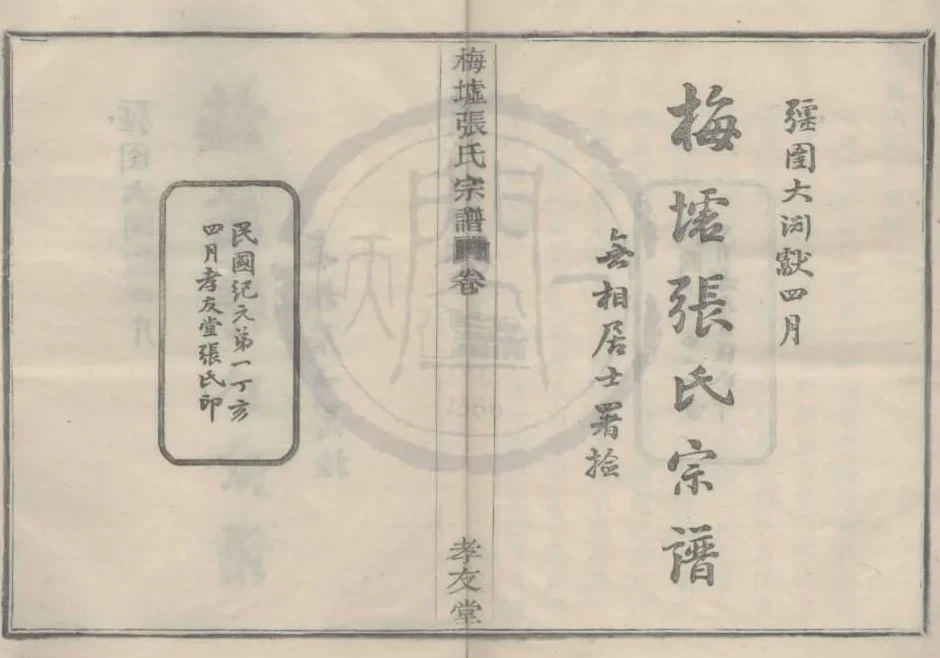 彊圉大淵獻四月
梅墟張氏宗譜
無相居士署檢
梅墟張氏宗譜 卷
孝友堂
民國紀元第一丁亥
四月孝友堂張氏印
1366